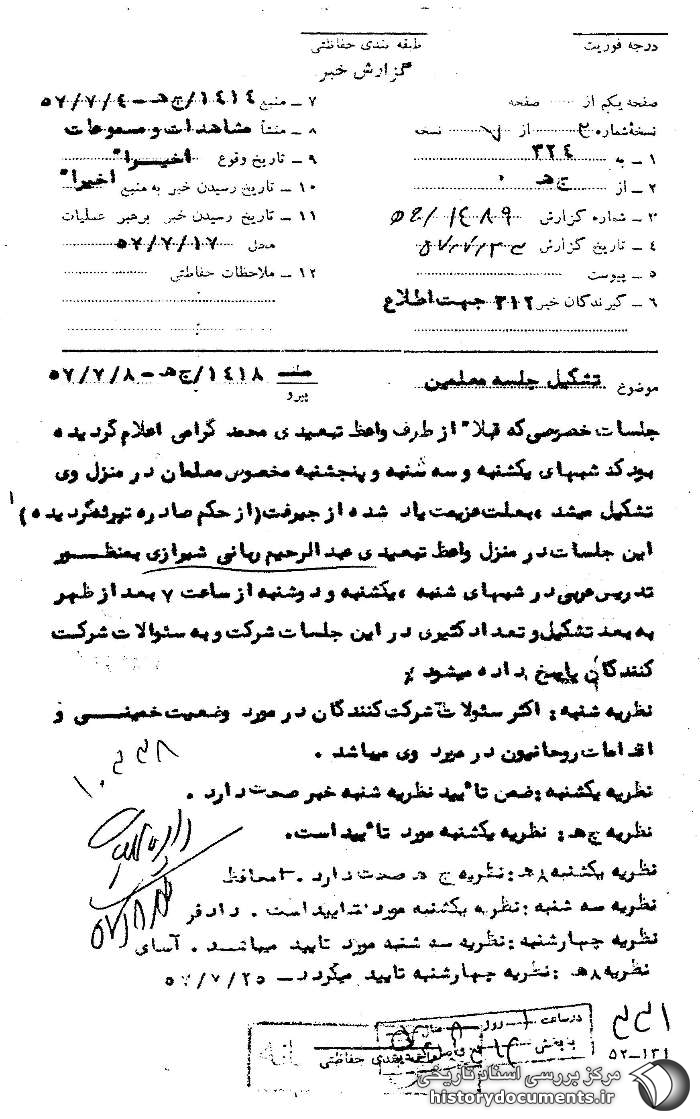 درجه فوریت
طبقه بندی حفاظتی
گزارش خبر
صفحه یکم از ...... صفحه
نسخهٔ شماره ۲ از ...... نسخه
۱ - به ۳۲۴
۲ - از ج ه
۳ - شماره گزارش
۴ - تاریخ گزارش
۵ - پیوست
۶ - گیرندگان خبر ۳۱۲ جهت اطلاع
۷ - منبع ۱۴۱۴/ج ه - ۵۷/۷/۴
۸ - منشأ مشاهدات و مسموعات
۹ - تاریخ وقوع اخیرا"
۱۰ - تاریخ رسیدن خبر به منبع اخیرا"
۱۱ - تاریخ رسیدن خبر برهبر عملیات
محلی ۵۷/۷/۱۷
۱۲ - ملاحظات حفاظتی
موضوع تشکیل جلسه معلمین
پیرو ۱۴۱۸/ج ه - ۵۷/۷/۸
جلسات خصوصی که قبلا" از طرف واعظ تبعیدی محمد گرامی اعلام گردیده
بود که شبهای یکشنبه و سه شنبه و پنجشنبه مخصوص معلمان در منزل وی
تشکیل میشد ، بعلت عزیمت یاد شده از جیرفت (از حکم صادره تبرئه گردیده)
این جلسات در منزل واعظ تبعیدی عبدالرحیم ربانی شیرازی بمنظور
تدریس عربی در شبهای شنبه ، یکشنبه و دوشنبه از ساعت ۷ بعد از ظهر
به بعد تشکیل و تعداد کثیری در این جلسات شرکت و به سئوالات شرکت
کنندگان پاسخ داده میشود
نظریه شنبه : اکثر سئولات شرکت کنندگان در مورد وضعیت خمینی و
اقدامات روحانیون در مورد وی میباشد .
نظریه یکشنبه : ضمن تأیید نظریه شنبه خبر صحت دارد .
نظریه ج ه : نظریه یکشنبه مورد تأیید است.
نظریه یکشنبه ۸ ه : نظریه ج ه صحت دارد . محافظ
نظریه سه شنبه : نظریه یکشنبه مورد تایید است . دادفر
نظریه چهارشنبه : نظریه سه شنبه مورد تایید میباشد . آسای
نظریه ۸ ه : نظریه چهارشنبه تایید میگردد - ۵۷/۷/۲۵
در ساعت روز
طبقه بندی حفاظتی
۵۲-۱۳۱
مرکز بررسی اسناد تاریخی
historydocuments.ir